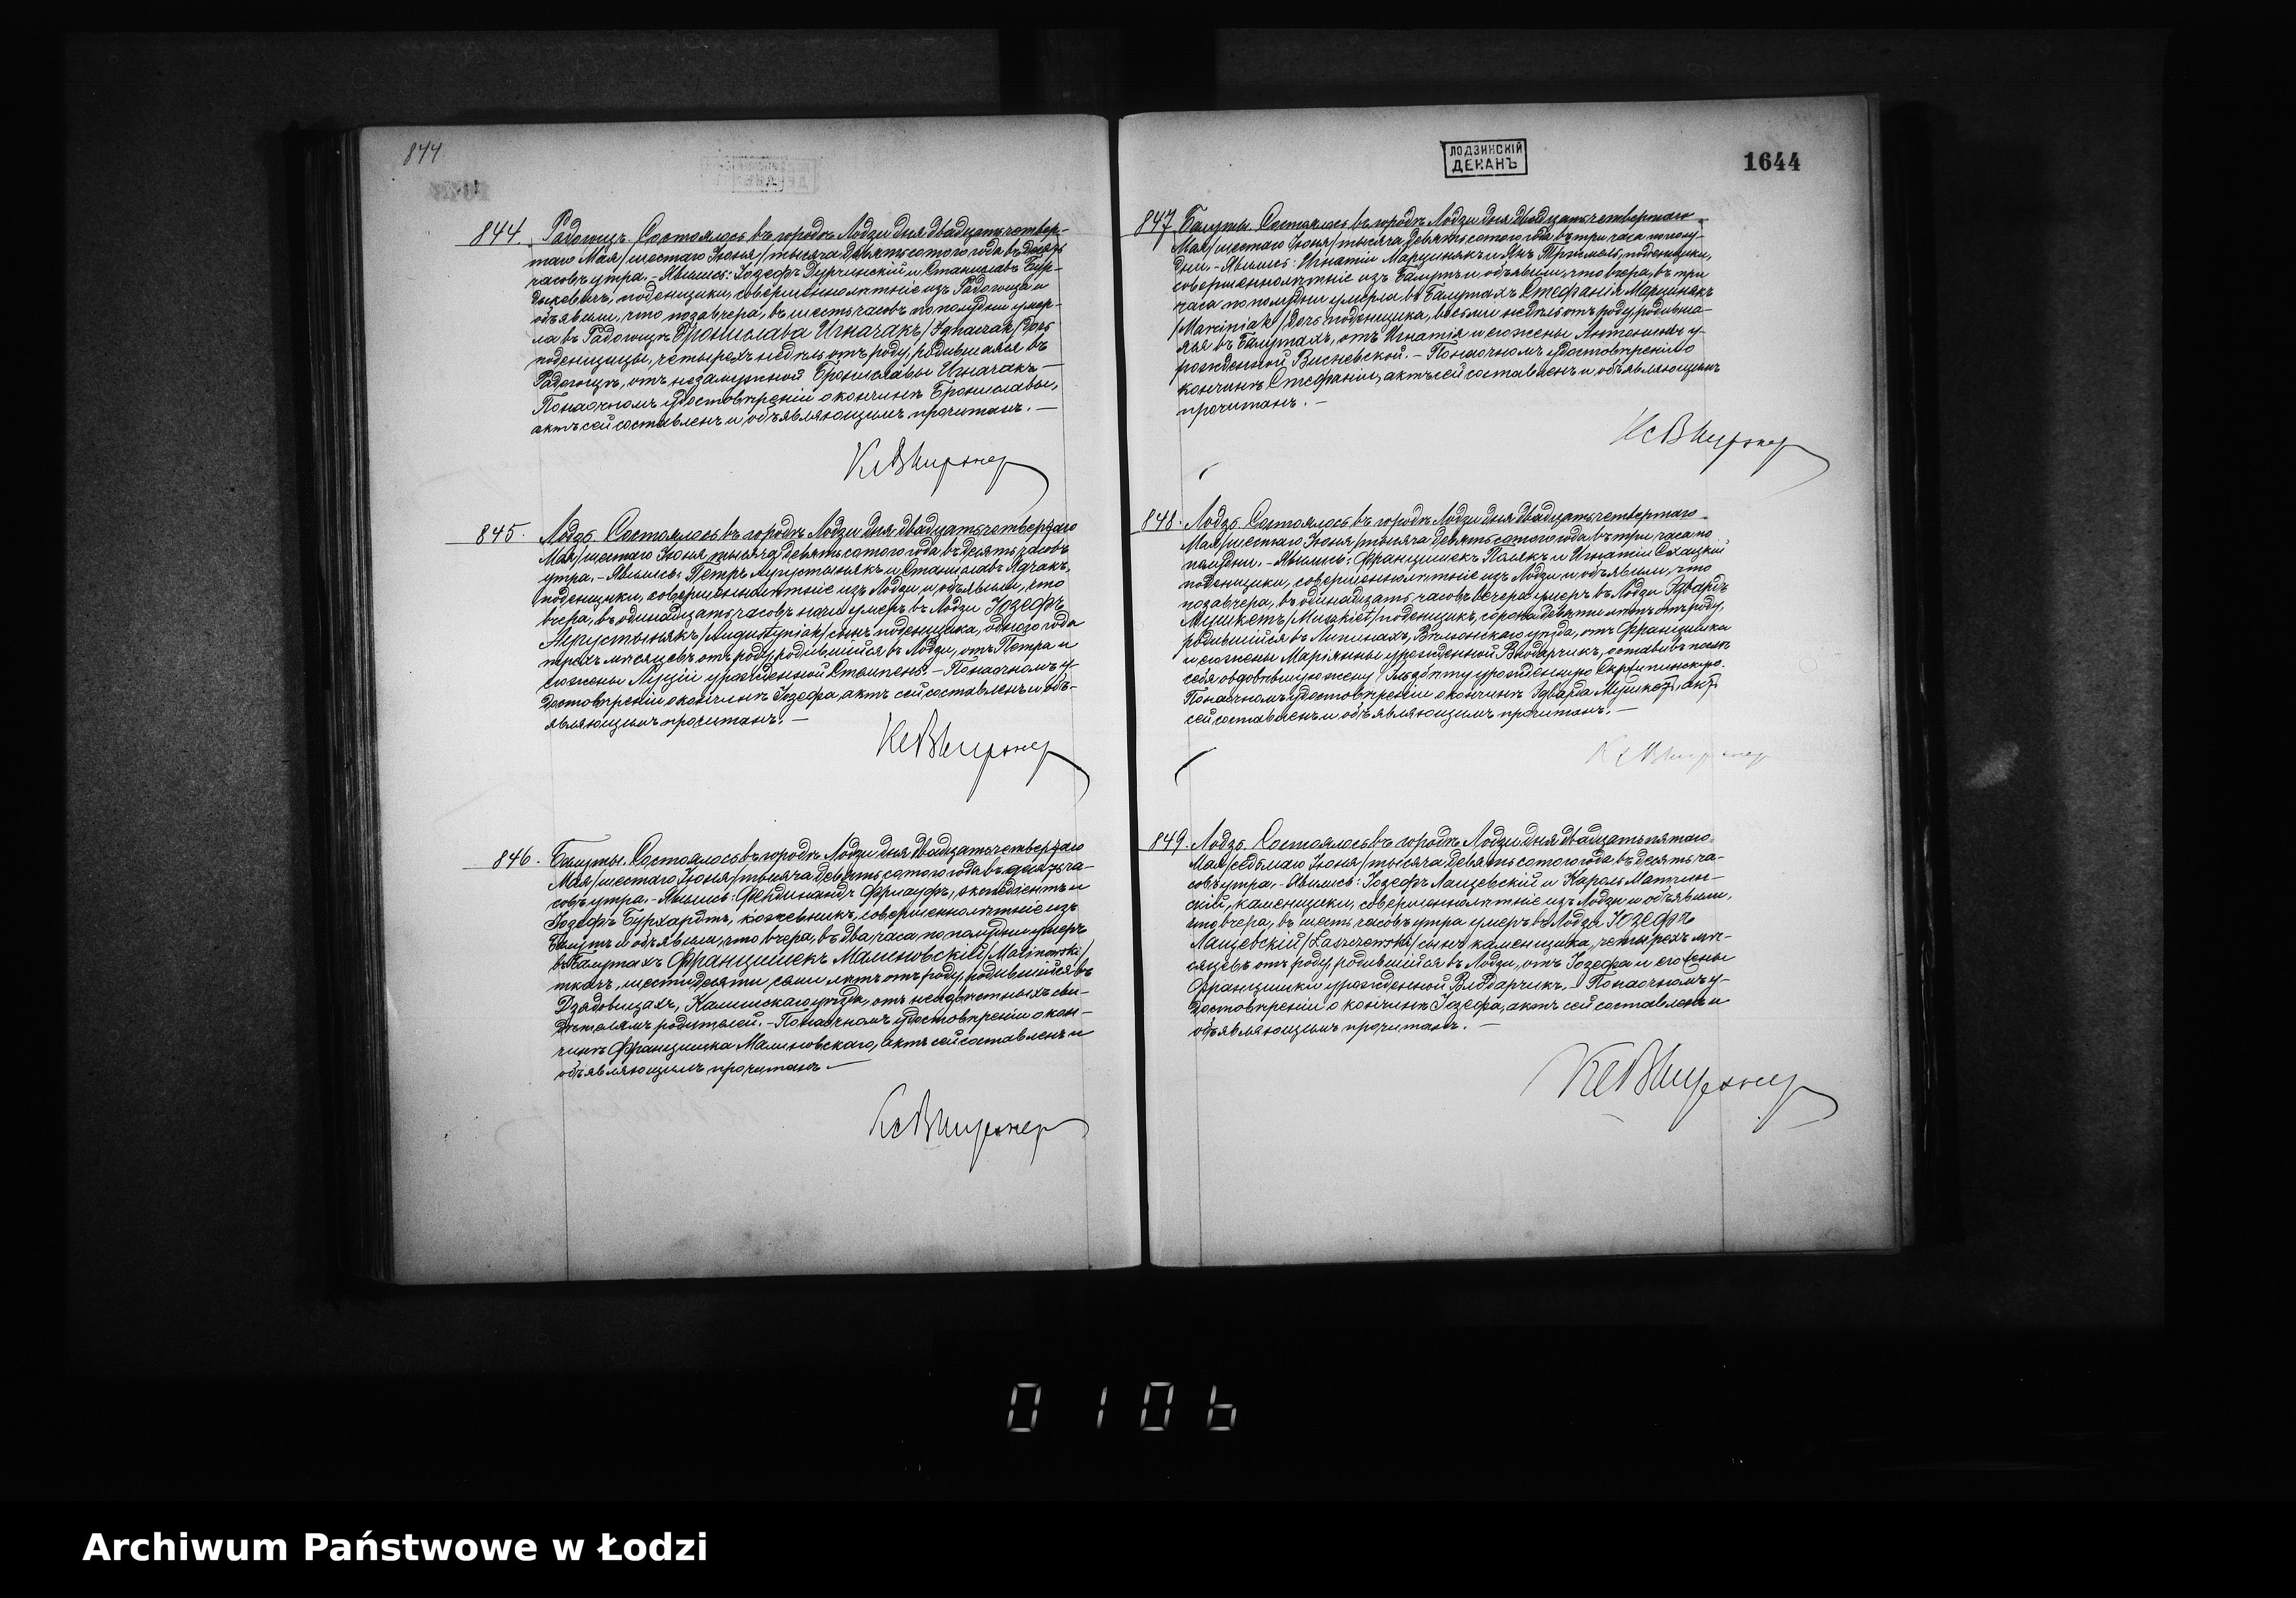 844
844. Радогощъ. Состоялось въ городѣ Лодзи дня двадцать четвер-
таго Мая /шестаго Іюня/ тысяча девятьсотого года въ десять
часовъ утра. - Явились: Іозефъ и Станиславъ
поденщики, совершеннолѣтніе изъ Радогоща и
объявили, что позавчера, въ шесть часовъ по полудни умер-
ла въ Радогощѣ Бронислава Игначакъ /Ignaczak/ дочь
поденщицы, четырехъ недѣль отъ роду, родившаяся въ
Радогощѣ, отъ незамужной Брониславы Игначакъ. -
По наочномъ удостовѣреніи о кончинѣ Брониславы,
актъ сей составленъ и объявляющимъ прочитанъ. -
845. Лодзь. Состоялось въ городѣ Лодзи дня двадцать четвертаго
Мая /шестаго Іюня/ тысяча девятьсотого года въ десять часовъ
утра. - Явились: Петръ Аугустынякъ и Станиславъ Адчакъ,
поденщики, совершеннолѣтніе изъ Лодзи и объявили, что
вчера, въ одинадцать часовъ ночи умеръ въ Лодзи Іозефъ
Аугустынякъ /Augustyniak/ сынъ поденщика, одного года
трехъ мѣсяцевъ отъ роду, родившійся въ Лодзи, отъ Петра и
его жены Луціи урожденной Стемпень. - По наочномъ у-
достовѣреніи о кончинѣ Іозефа, актъ сей составленъ и объ-
являющимъ прочитанъ. -
846. Балуты. Состоялось въ городѣ Лодзи дня двадцать четвертаго
Мая /шестаго Іюня/ тысяча девятьсотого года въ десять ча-
совъ утра. - Явились: Фердинандъ и
Іозефъ Бурхардтъ, кожевникъ, совершеннолѣтніе изъ
Балутъ и объявили, что вчера, въ два часа по полудни умеръ
въ Балутахъ Францишекъ Малиновскій /Malinowski/
ткачъ, шестидесяти семи лѣтъ отъ роду, родившійся въ
Дзядовицахъ, Калишскаго уѣзда, отъ неизвѣстныхъ сви-
дѣтелямъ родителей. - По наочномъ удостовѣреніи о кон-
чинѣ Францишка Малиновскаго, актъ сей составленъ и
объявляющимъ прочитанъ. -
ЛОДЗИНСКІЙ
ДЕКАНЪ
1644
847. Балуты. Состоялось въ городѣ Лодзи дня двадцать четвертаго
Мая /шестаго Іюня/ тысяча девятьсотого года въ три часа по полу-
дни. - Явились: Игнатій Марцинякъ и Янъ поденщики,
совершеннолѣтніе изъ Балутъ и объявили, что вчера, въ три
часа по полудни умерла въ Балутахъ Стефанія Марцинякъ
/Marciniak/ дочь поденщика, восьми недѣль отъ роду, родивша-
яся въ Балутахъ, отъ Игнатія и его жены Антонины у-
рожденной Висневской. - По наочномъ удостовѣреніи о
кончинѣ Стефаніи, актъ сей составленъ и объявляющимъ
прочитанъ. -
848. Лодзь. Состоялось въ городѣ Лодзи дня двадцать четвертаго
Мая /шестаго Іюня/ тысяча девятьсотого года въ три часа по
полудни. - Явились: Францишекъ Полякъ и Игнатій
поденщики, совершеннолѣтніе изъ Лодзи и объявили, что
позавчера, въ одинадцать часовъ вечера умеръ въ Лодзи Эдвардъ
Мушкетъ /Muszkiet/ поденщикъ, сорока девяти лѣтъ отъ роду,
родившійся въ Липинахъ, Велюнскаго уѣзда, отъ Францишка
и его жены Маріянны урожденной Влодарчикъ, оставивъ послѣ
себя овдовѣвшую жену Эльжбѣту урожденную Скржипинскую.
По наочномъ удостовѣреніи о кончинѣ Эдварда Мушкета, актъ
сей составленъ и объявляющимъ прочитанъ. -
849. Лодзь. Состоялось въ городѣ Лодзи дня двадцать пятаго
Мая /седьмаго Іюня/ тысяча девятьсотого года въ десять ча-
совъ утра. - Явились: Іозефъ Лащевскій и Кароль
каменщики, совершеннолѣтніе изъ Лодзи и объявили,
что вчера, въ шесть часовъ утра умеръ въ Лодзи Іозефъ
Лащевскій /Laszczewski/ сынъ каменщика, четырехъ мѣ-
сяцевъ отъ роду, родившійся въ Лодзи, отъ Іозефа и его жены
Францишки урожденной Влодарчикъ. - По наочномъ у-
достовѣреніи о кончинѣ Іозефа, актъ сей составленъ и
объявляющимъ прочитанъ. -
0106
Archiwum Państwowe w Łodzi